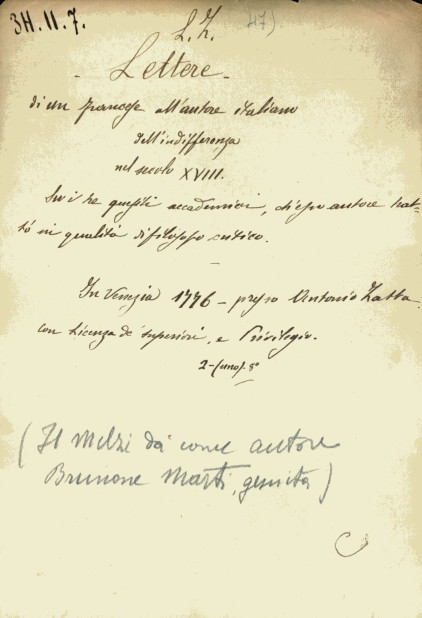 34.11.7.
L. Z. 47)
- Lettere -
di un francese all'autore italiano
dell'indifferenza
nel secolo XVIII.
Su i tre quesiti accademici, ch'esso autore trat-
tò in qualità di filosofo critico.
In Venezia 1776 - presso Antonio Zatta
con Licenza de' superiori, e Privilegio.
2-(uno). 8º
(Il Melzi dà come autore
Brunone Marti, gesuita)